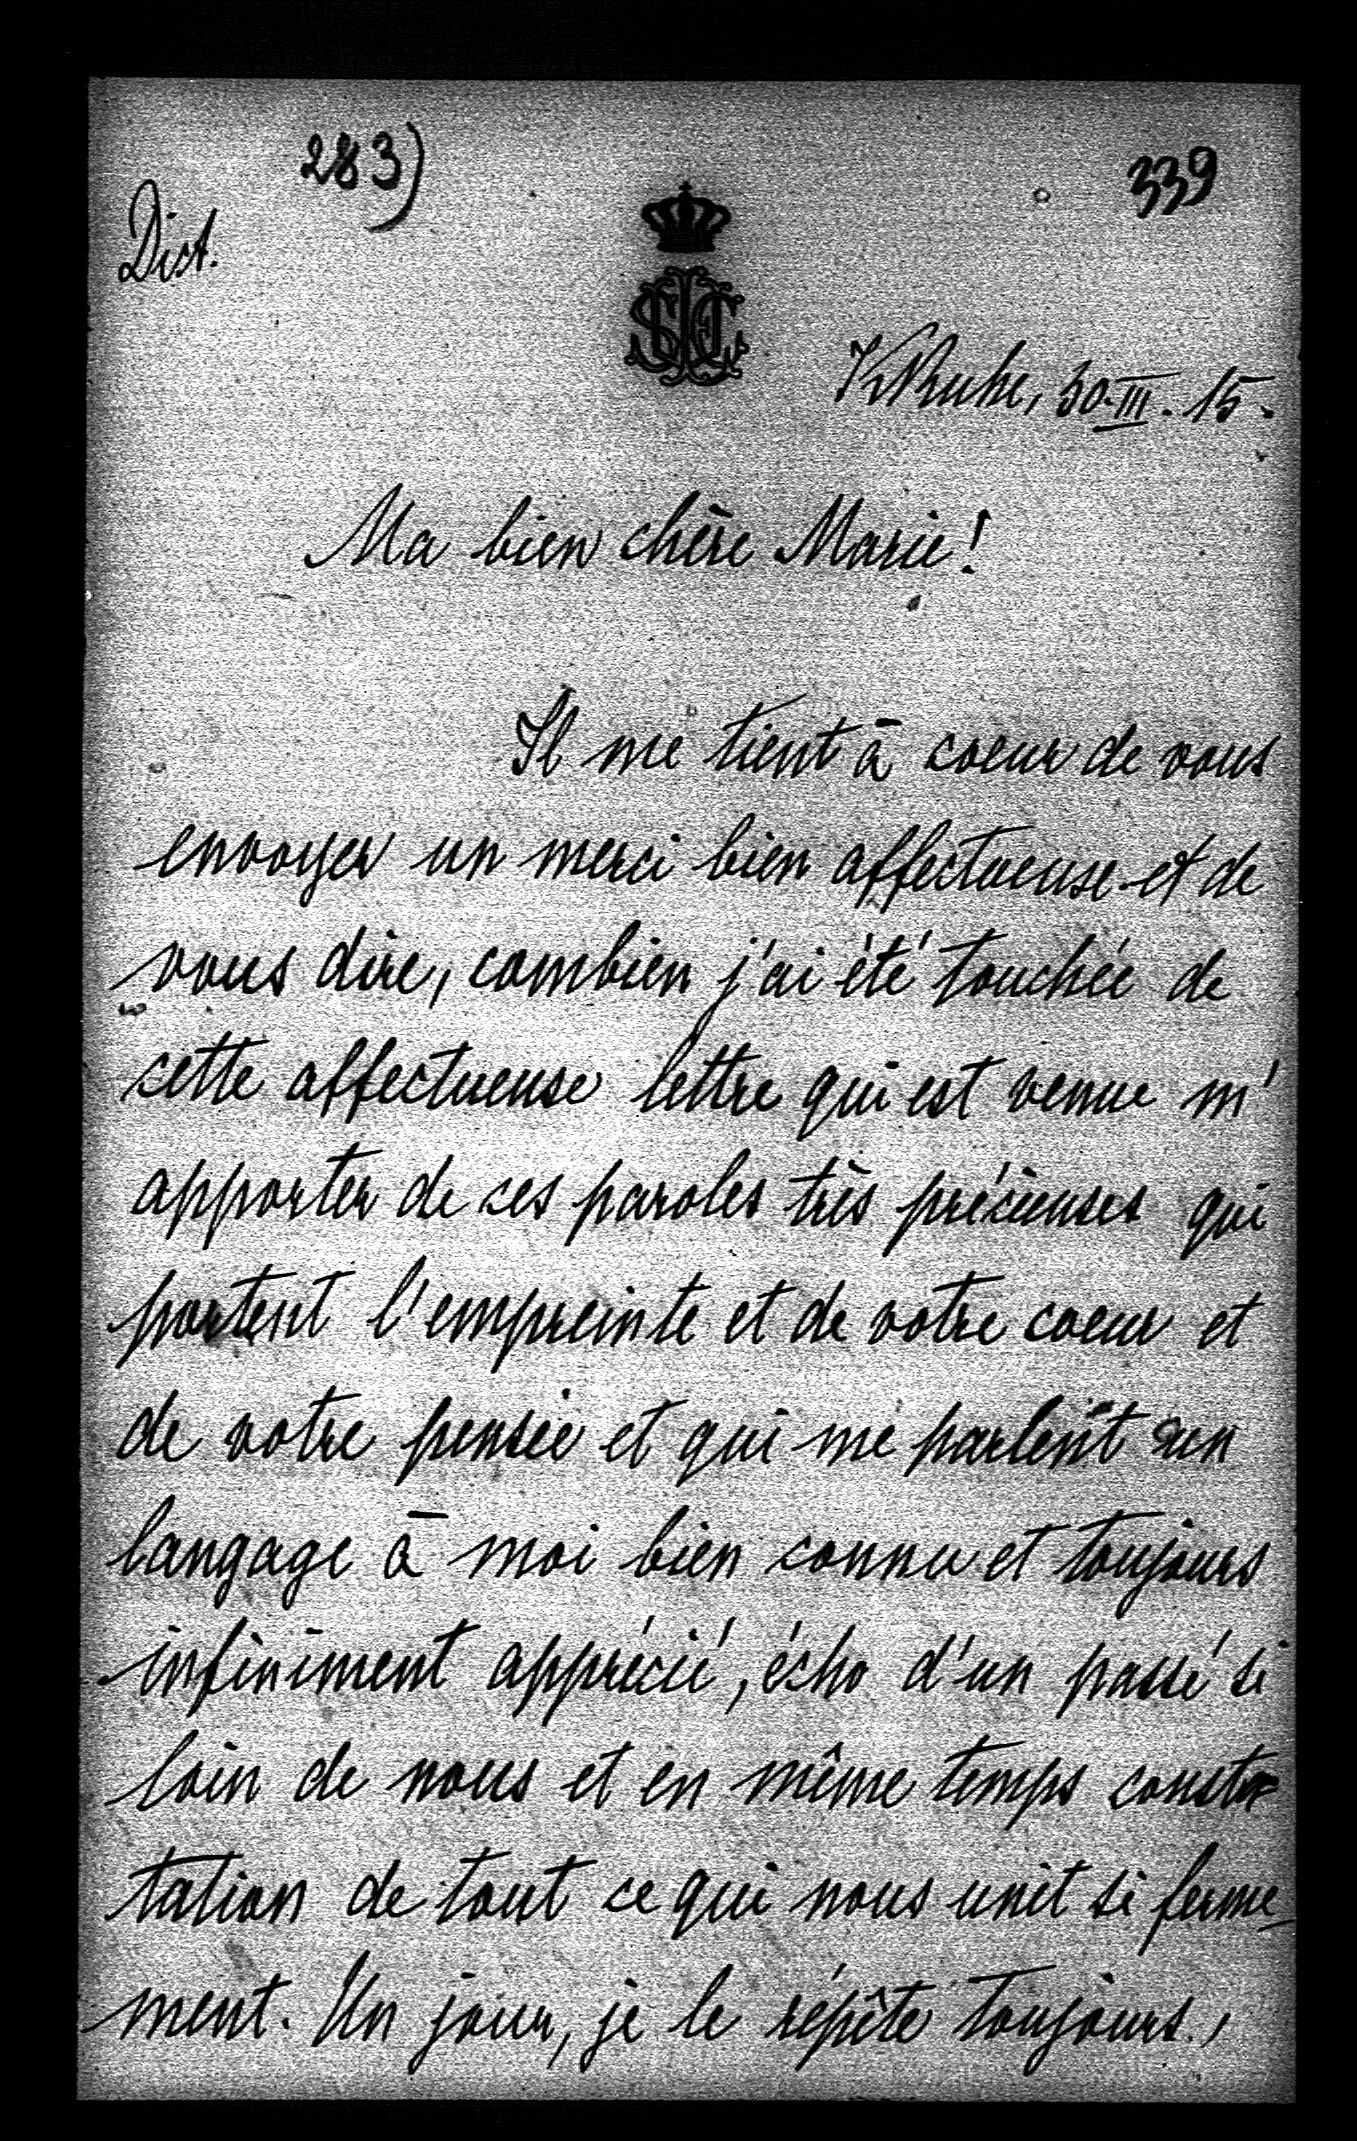 283)
339
Dict.
KRuhe, 30.III.15.
Ma bien chère Marie!
Il me tient à coeur de vous
envoyer un merci bien affectueuse et de
vous dire, combien j'ai été touchée de
cette affectueuse lettre qui est venue m'
apporter de ces paroles très précieuses qui
portent l'empreinte et de votre coeur et
de votre pensée et qui me parlent un
langage à moi bien connu et toujours
infiniment apprécié, écho d'un passé si
loin de nous et en même temps consta-
tation de tout ce qui nous unit si ferme-
ment. Un jour, je le répête toujours,